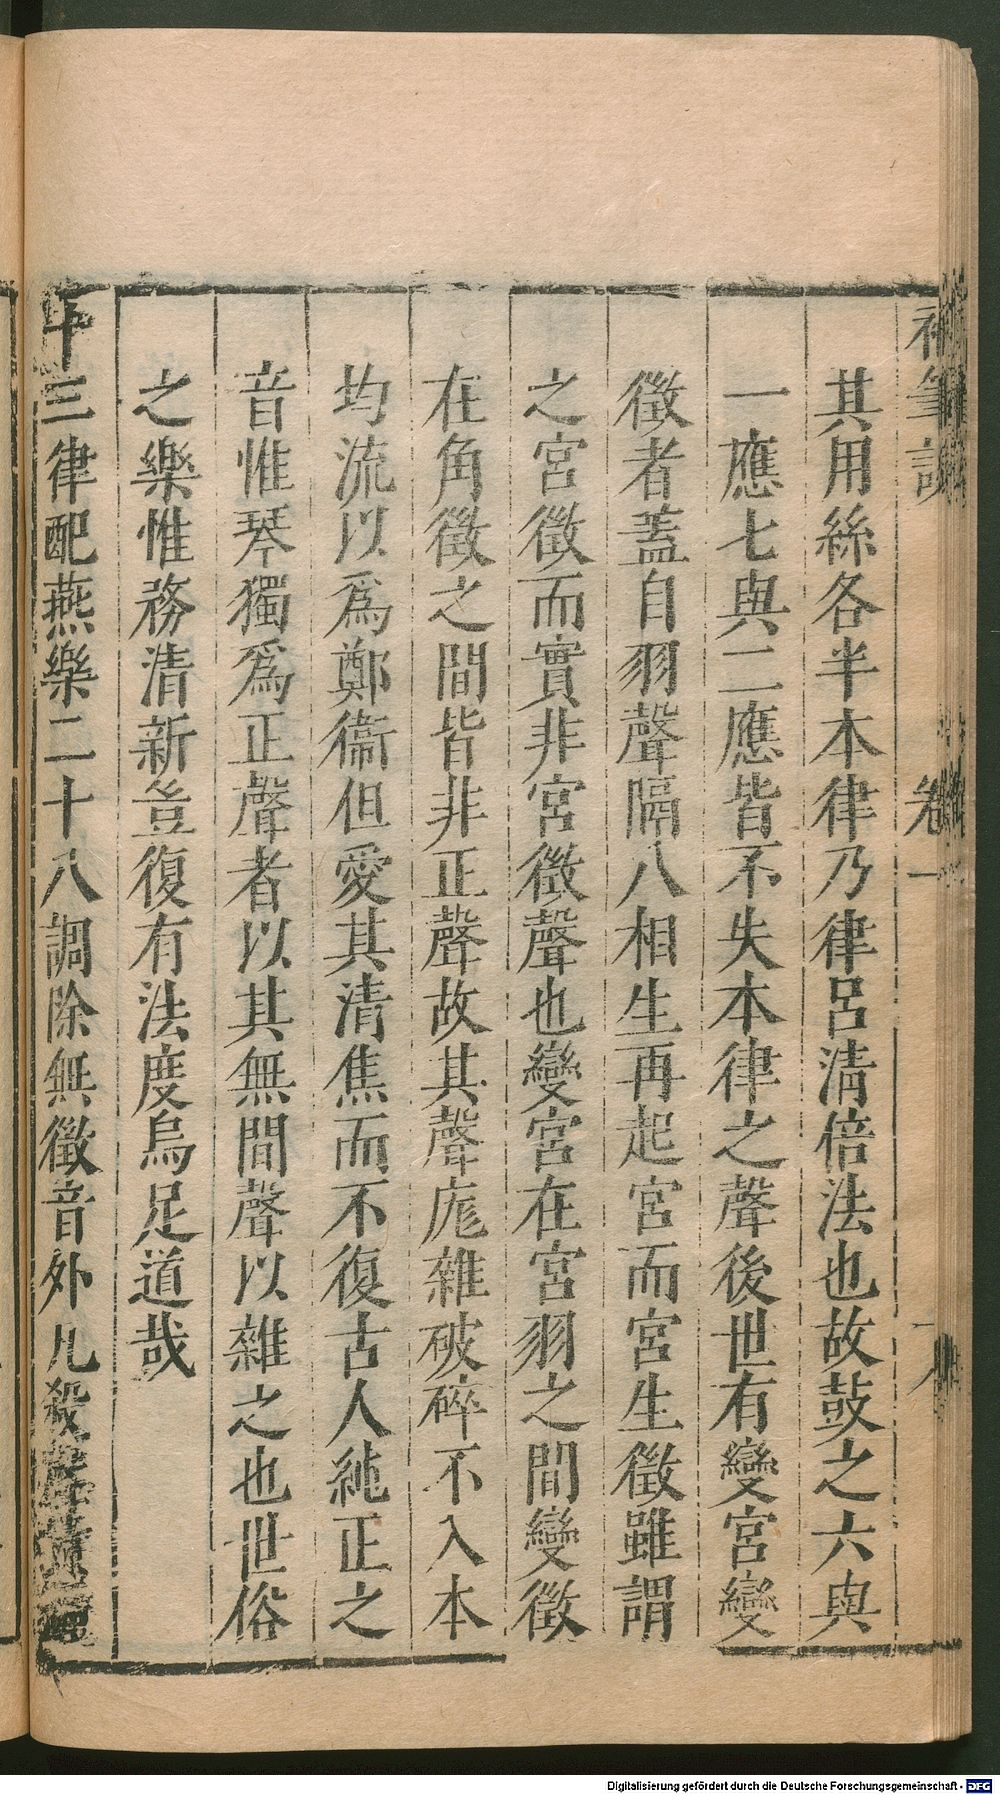 補筆談 卷一
其用絲各半本律乃律呂淸倍法也故鼓之六與
一應七與二應皆不失本律之聲後世有變宮變
徵者蓋自羽聲隔八相生再起宮而宮生徵雖謂
之宮徵而實非宮徵聲也變宮在宮羽之間變徵
在角徵之間皆非正聲故其聲庬雜破碎不入本
均流以爲鄭衞但愛其清焦而不復古人純正之
音惟琴獨爲正聲者以其無間聲以雜之也世俗
之樂惟務清新豈復有法度烏足道哉
十三律配燕樂二十八調除無徵音外凡殺聲黃
Digitalisierung gefördert durch die Deutsche Forschungsgemeinschaft - DFG